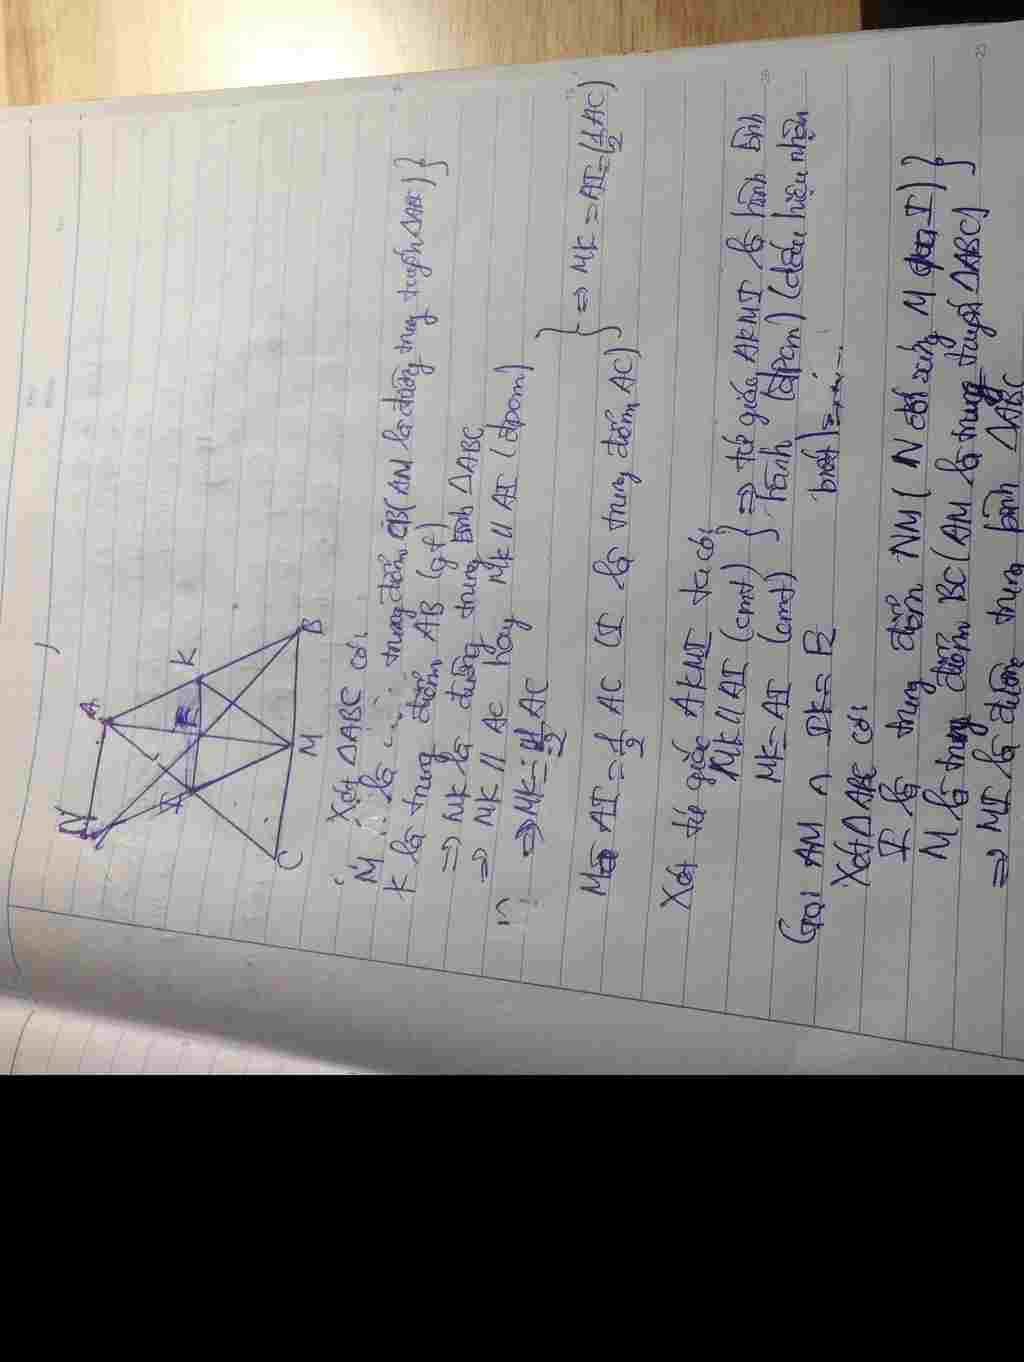 N
A
K
I
E
C
M
B
Xét ΔABC có:
M là trung điểm CB (AM là đường trung tuyến ΔABC) }
K là trung điểm AB (gt)
=> MK là đường trung bình ΔABC
=> MK // AC hay MK // AI (đpcm)
=> MK = 1/2 AC
}
=> MK = AI = (1/2 AC)
Mà AI = 1/2 AC (I là trung điểm AC)
Xét tứ giác AKMI ta có:
MK // AI (cmt) } => tứ giác AKMI là hình bình
MK = AI (cmt) hành (đpcm) (dấu hiệu nhận
biết)
Gọi AM ∩ IK = E
Xét Δ ABC có:
I là trung điểm NM (N đối xứng M qua I) }
M là trung điểm BC (AM là trung tuyến ΔABC)
=> MI là đường trung bình ΔABC